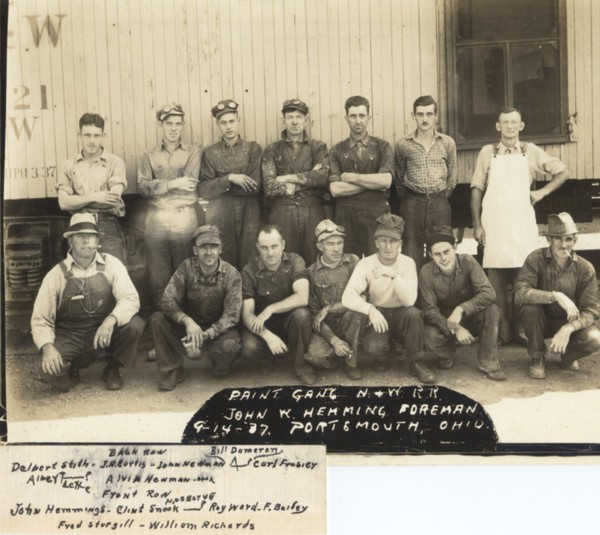 & W
21
W
3 37
PAINT GANG N.&W R.R.
JOHN W. HEMMING FOREMAN
9-14-37. PORTSMOUTH, OHIO.
BACK ROW Bill Dameron
Delbert Stith - J.H. Curtis - John Newman Carl Frasier
Albert Alvin Newman - cook
Front Row
N. OSBORNE
John Hemmings - Clint Snook Roy Ward - F. Bailey
Fred Sturgill - William Richards